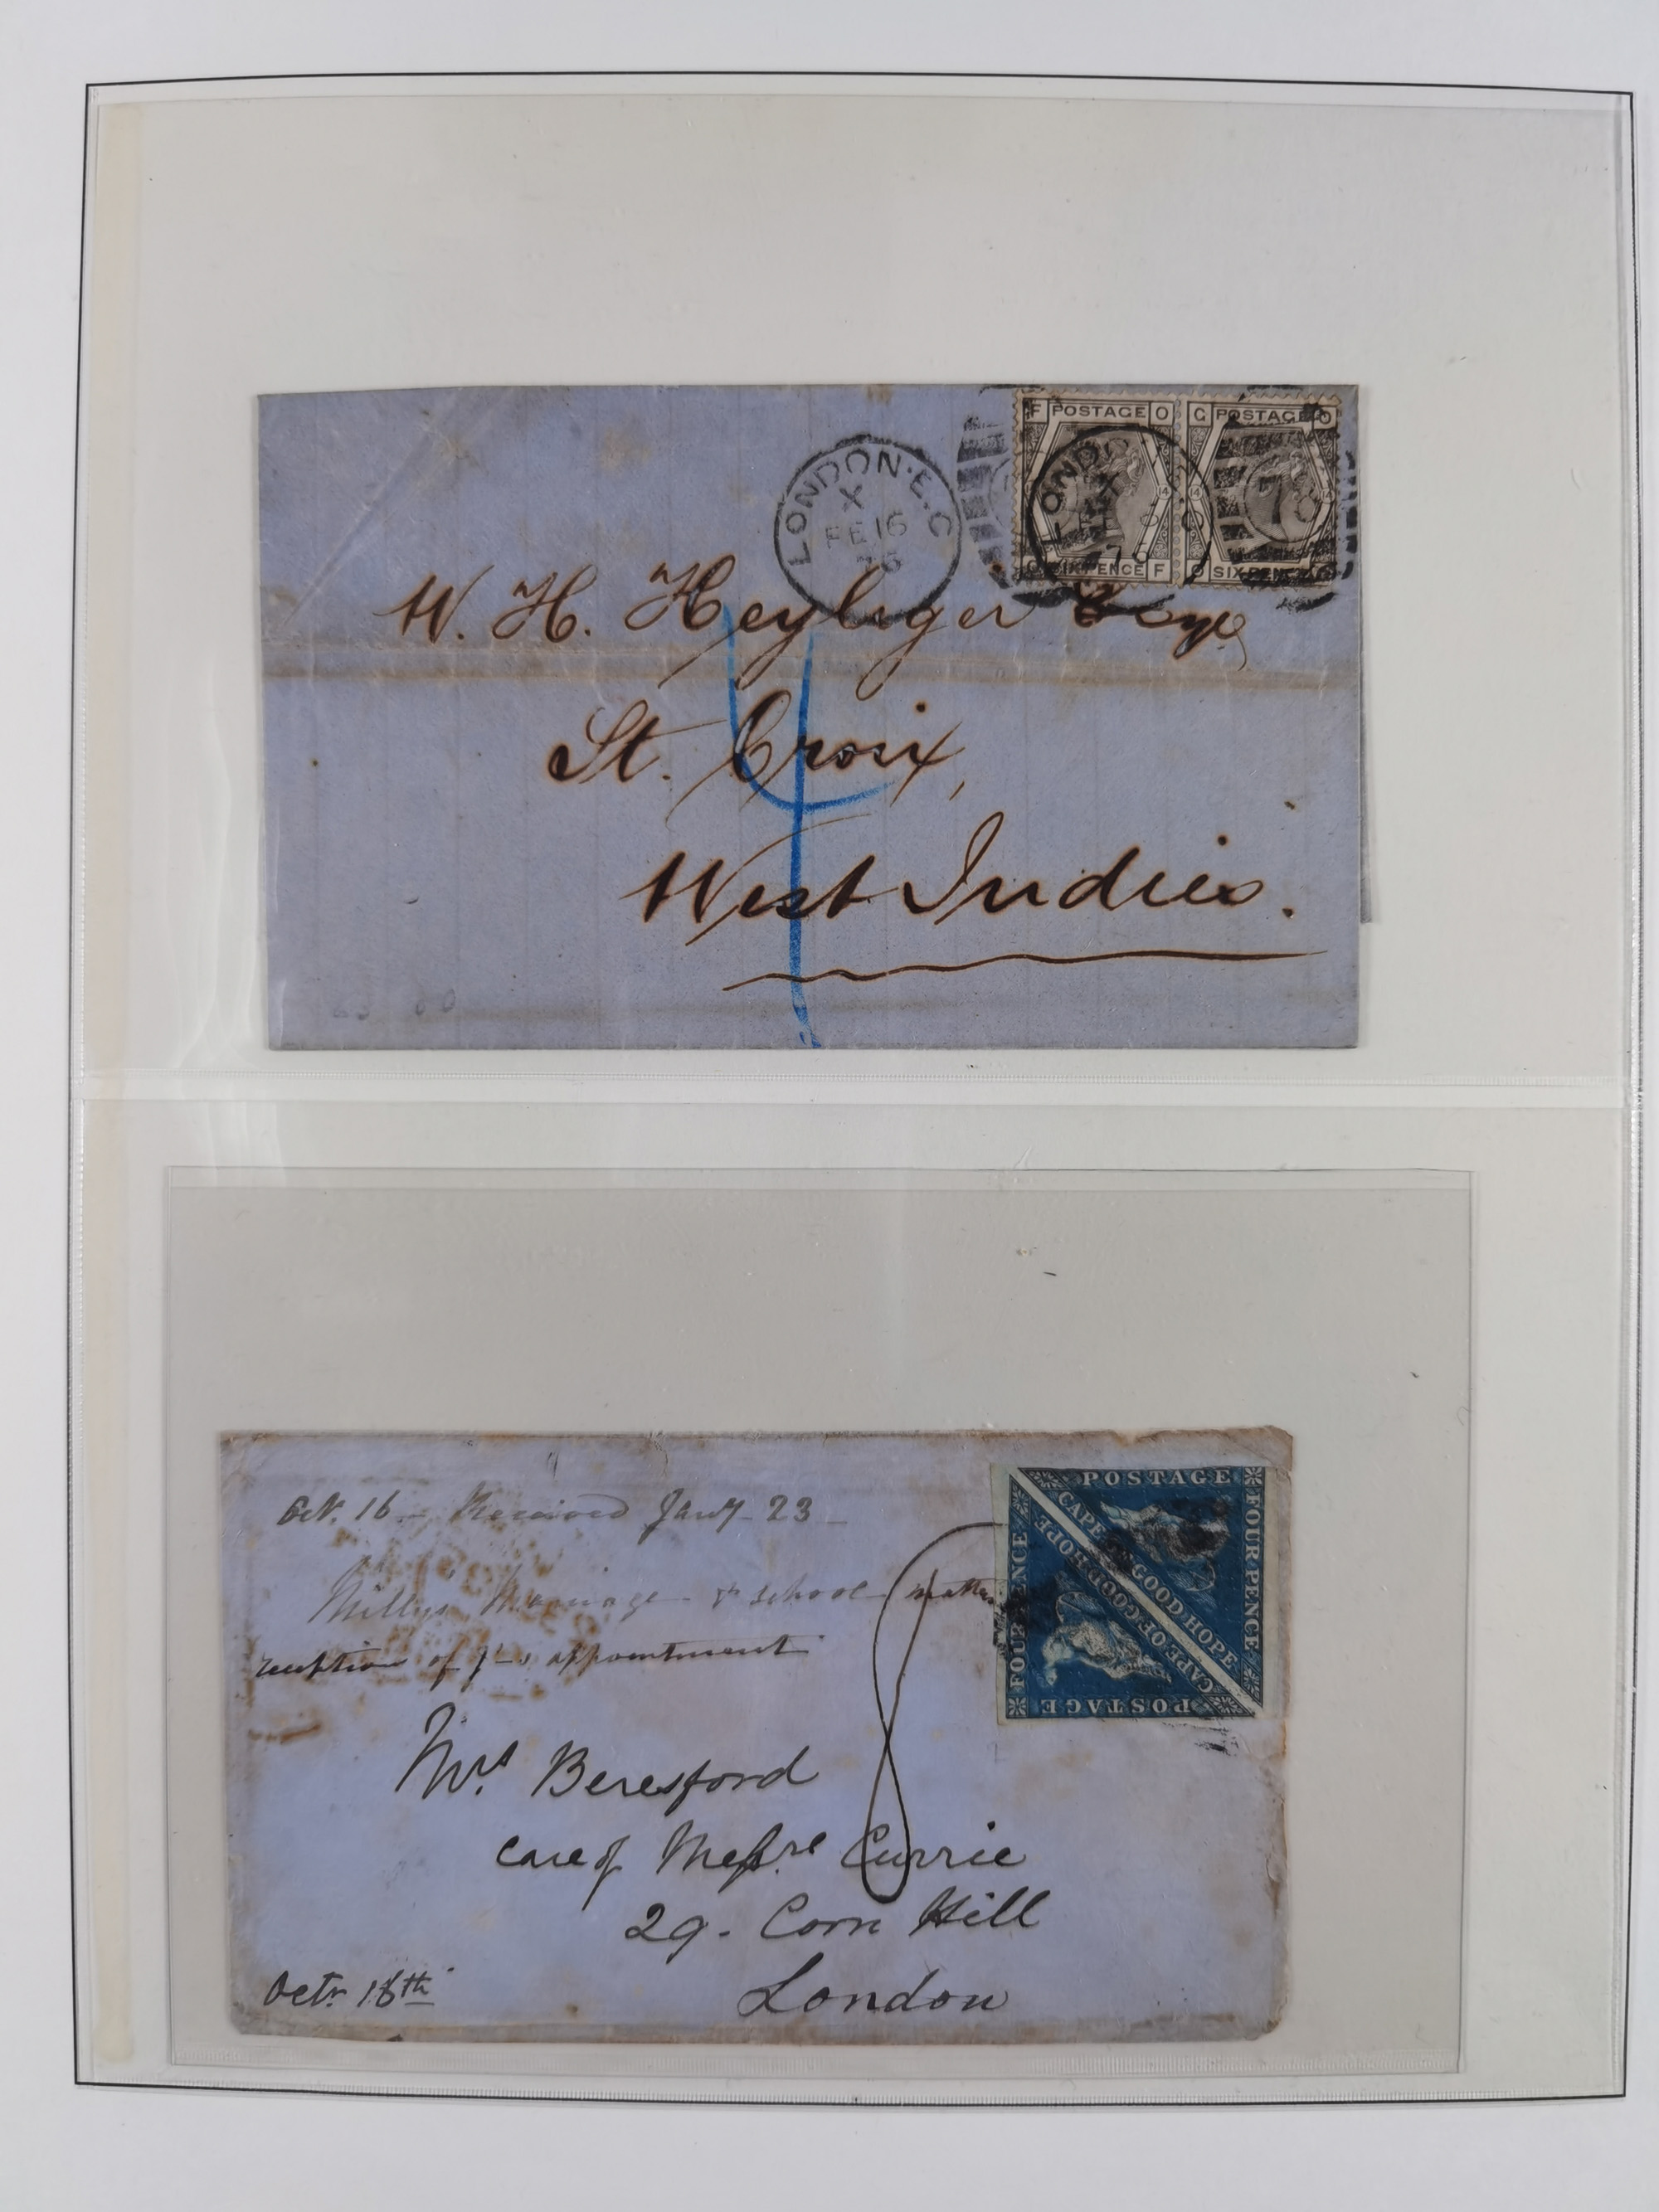 F POSTAGE O
G POSTAGE O
14
14
SIXPENCE F
SIXPEN
78
LONDON·E.C
X
FE 16
76
LONDO
X
76
W. H. Heyliger Esqe
St. Croix,
West Indies.
4
Oct. 16 - Received Jany 23
Milly's Marriage & school matters
reception of J-s appointment
8
POSTAGE
CAPE OF GOOD HOPE
FOUR PENCE
FOUR PENCE
CAPE OF GOOD HOPE
POSTAGE
Mrs Beresford
care of Messrs Currie
29. Corn Hill
London
Octr. 18th